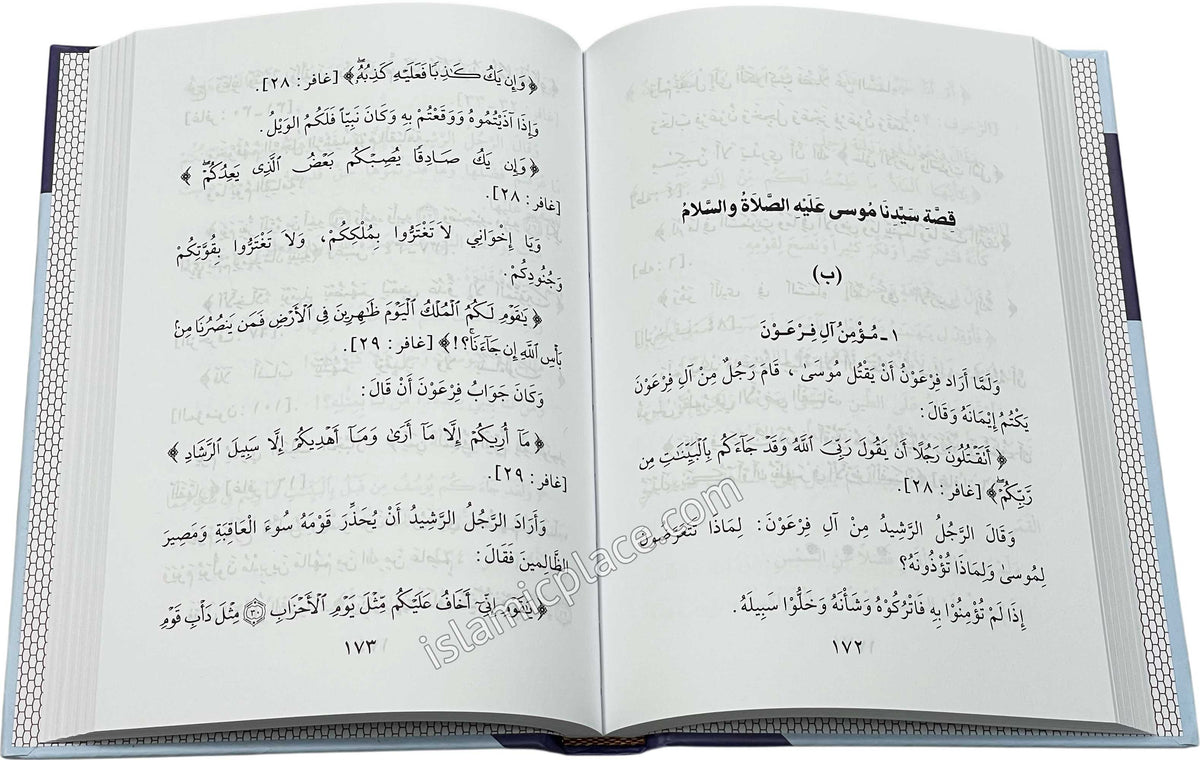 قِصَّةِ سَيِّدِنَا مُوسى عَلَيْهِ الصَّلَاةُ والسَّلَامُ
(ب)
١ ـ مُـؤْمِـنُ آلِ فِـرْعَـوْنَ
وَلَمَّا أَرَادَ فِرْعَوْنُ أَنْ يَقْتُلَ مُوسَىٰ ، قَامَ رَجُلٌ مِنْ آلِ فِرْعَوْنَ
يَكْتُمُ إِيْمَانَهُ وَقَالَ:
﴿ أَتَقْتُلُونَ رَجُلًا أَن يَقُولَ رَبِّيَ ٱللَّهُ وَقَدْ جَآءَكُم بِٱلْبَيِّنَٰتِ مِن
رَّبِّكُمْۖ ﴾ [غافر: ٢٨].
وَقَالَ الرَّجُلُ الرَّشِيدُ مِنْ آلِ فِرْعَوْنَ: لِمَاذَا تَتَعَرَّضُونَ
لِمُوسىٰ وَلِمَاذَا تُؤْذُونَهُ؟
إِذَا لَمْ تُؤْمِنُوْا بِهِ فَاتْرُكُوْهُ وَشَأْنَهُ وَخَلُّوْا سَبِيلَهُ.
١٧٢
﴿ وَإِن يَكُ كَٰذِبًا فَعَلَيْهِ كَذِبُهُۥۖ ﴾ [غافر: ٢٨].
وَإِذَا آذَيْتُمُوهُ وَوَقَعْتُمْ بِهِ وَكَانَ نَبِيّاً فَلَكُمُ الوَيْلُ.
﴿ وَإِن يَكُ صَادِقًا يُصِبْكُم بَعْضُ ٱلَّذِى يَعِدُكُمْۖ ﴾
[غافر: ٢٨].
وَيَا إِخْوَانِي لَا تَغْتَرُّوا بِمُلْكِكُمْ، وَلَا تَغْتَرُّوا بِقُوَّتِكُمْ
وَجُنُودِكُمْ.
﴿ يَٰقَوْمِ لَكُمُ ٱلْمُلْكُ ٱلْيَوْمَ ظَٰهِرِينَ فِى ٱلْأَرْضِ فَمَن يَنصُرُنَا مِنۢ
بَأْسِ ٱللَّهِ إِن جَآءَنَاۚ؟! ﴾ [غافر: ٢٩].
وَكَانَ جَوَابُ فِرْعَوْنَ أَنْ قَالَ:
﴿ مَآ أُرِيكُمْ إِلَّا مَآ أَرَىٰ وَمَآ أَهْدِيكُمْ إِلَّا سَبِيلَ ٱلرَّشَادِ ﴾
[غافر: ٢٩].
وَأَرَادَ الرَّجُلُ الرَّشِيدُ أَنْ يُحَذِّرَ قَوْمَهُ سُوءَ الْعَاقِبَةِ وَمَصِيرَ
الظَّالِمِينَ فَقَالَ:
﴿ يَٰقَوْمِ إِنِّىٓ أَخَافُ عَلَيْكُم مِّثْلَ يَوْمِ ٱلْأَحْزَابِ ٣٠ مِثْلَ دَأْبِ قَوْمِ
١٧٣
islamicplace.com